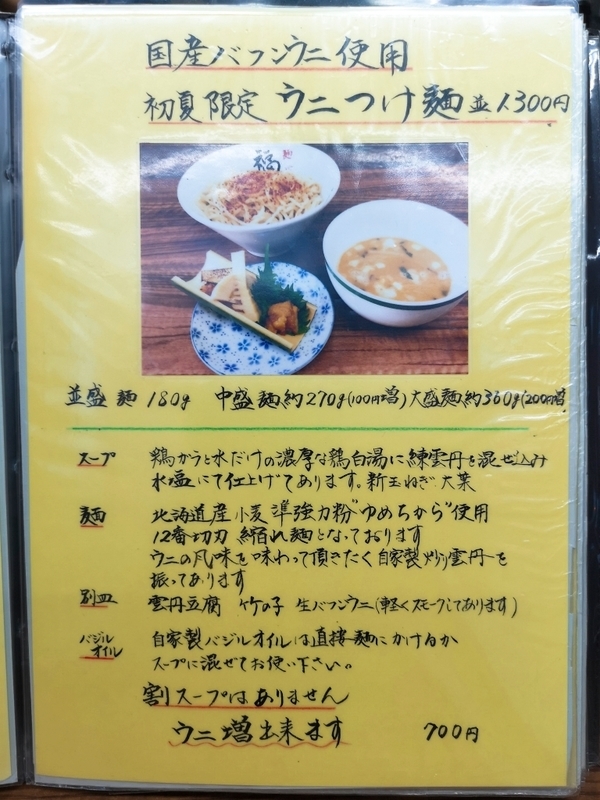 国産バフンウニ使用
初夏限定 ウニつけ麺 並1300円
福
並盛麺180g 中盛麺約270g(100円増)大盛麺約360g(200円増
スープ 鶏ガラと水だけの濃厚な鶏白湯に練雲丹を混ぜ込み
水塩にて仕上げてあります。新玉ねぎ、大葉
麺 北海道産小麦 準強力粉"ゆめちから"使用
12番切刃 縮れ麺となっております
ウニの風味を味わって頂きたく自家製炒り雲丹を
振ってあります
別皿 雲丹豆腐 竹の子 生バフンウニ(軽くスモークしてあります)
バジルオイル 自家製バジルオイルは直接麺にかけるか
スープに混ぜてお使い下さい。
割スープはありません
ウニ増出来ます 700円